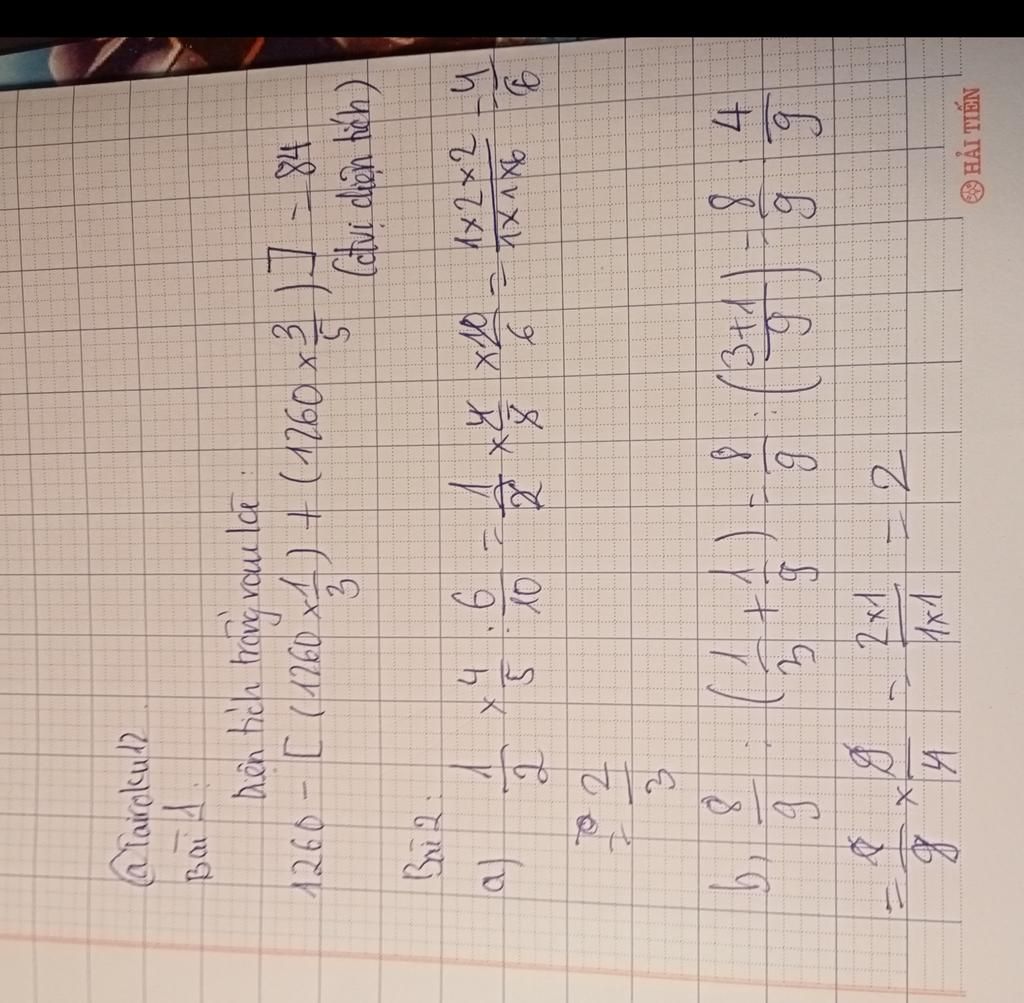 @Tairokul2
Bài 1:
Diện tích trồng rau là:
1260 - [(1260 × 1/3) + (1260 × 3/5)] = 84
(đvị diện tích)
Bài 2:
a) 1/2 × 4/5 : 6/10 = 1/2 × 4/5 × 10/6 = 1×2×2/1×1×6 = 4/6
= 2/3
b, 8/9 : (1/3 + 1/9) = 8/9 : (3+1/9) = 8/9 : 4/9
= 8/9 × 9/4 = 2×1/1×1 = 2
HẢI TIẾN